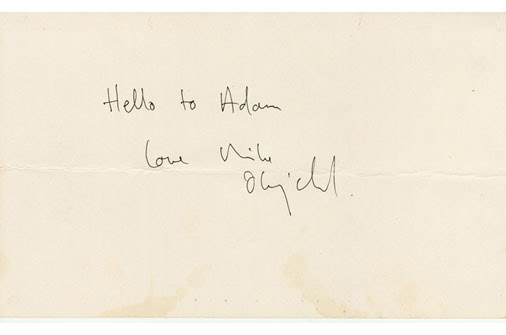 Hello to Adam
love Mike